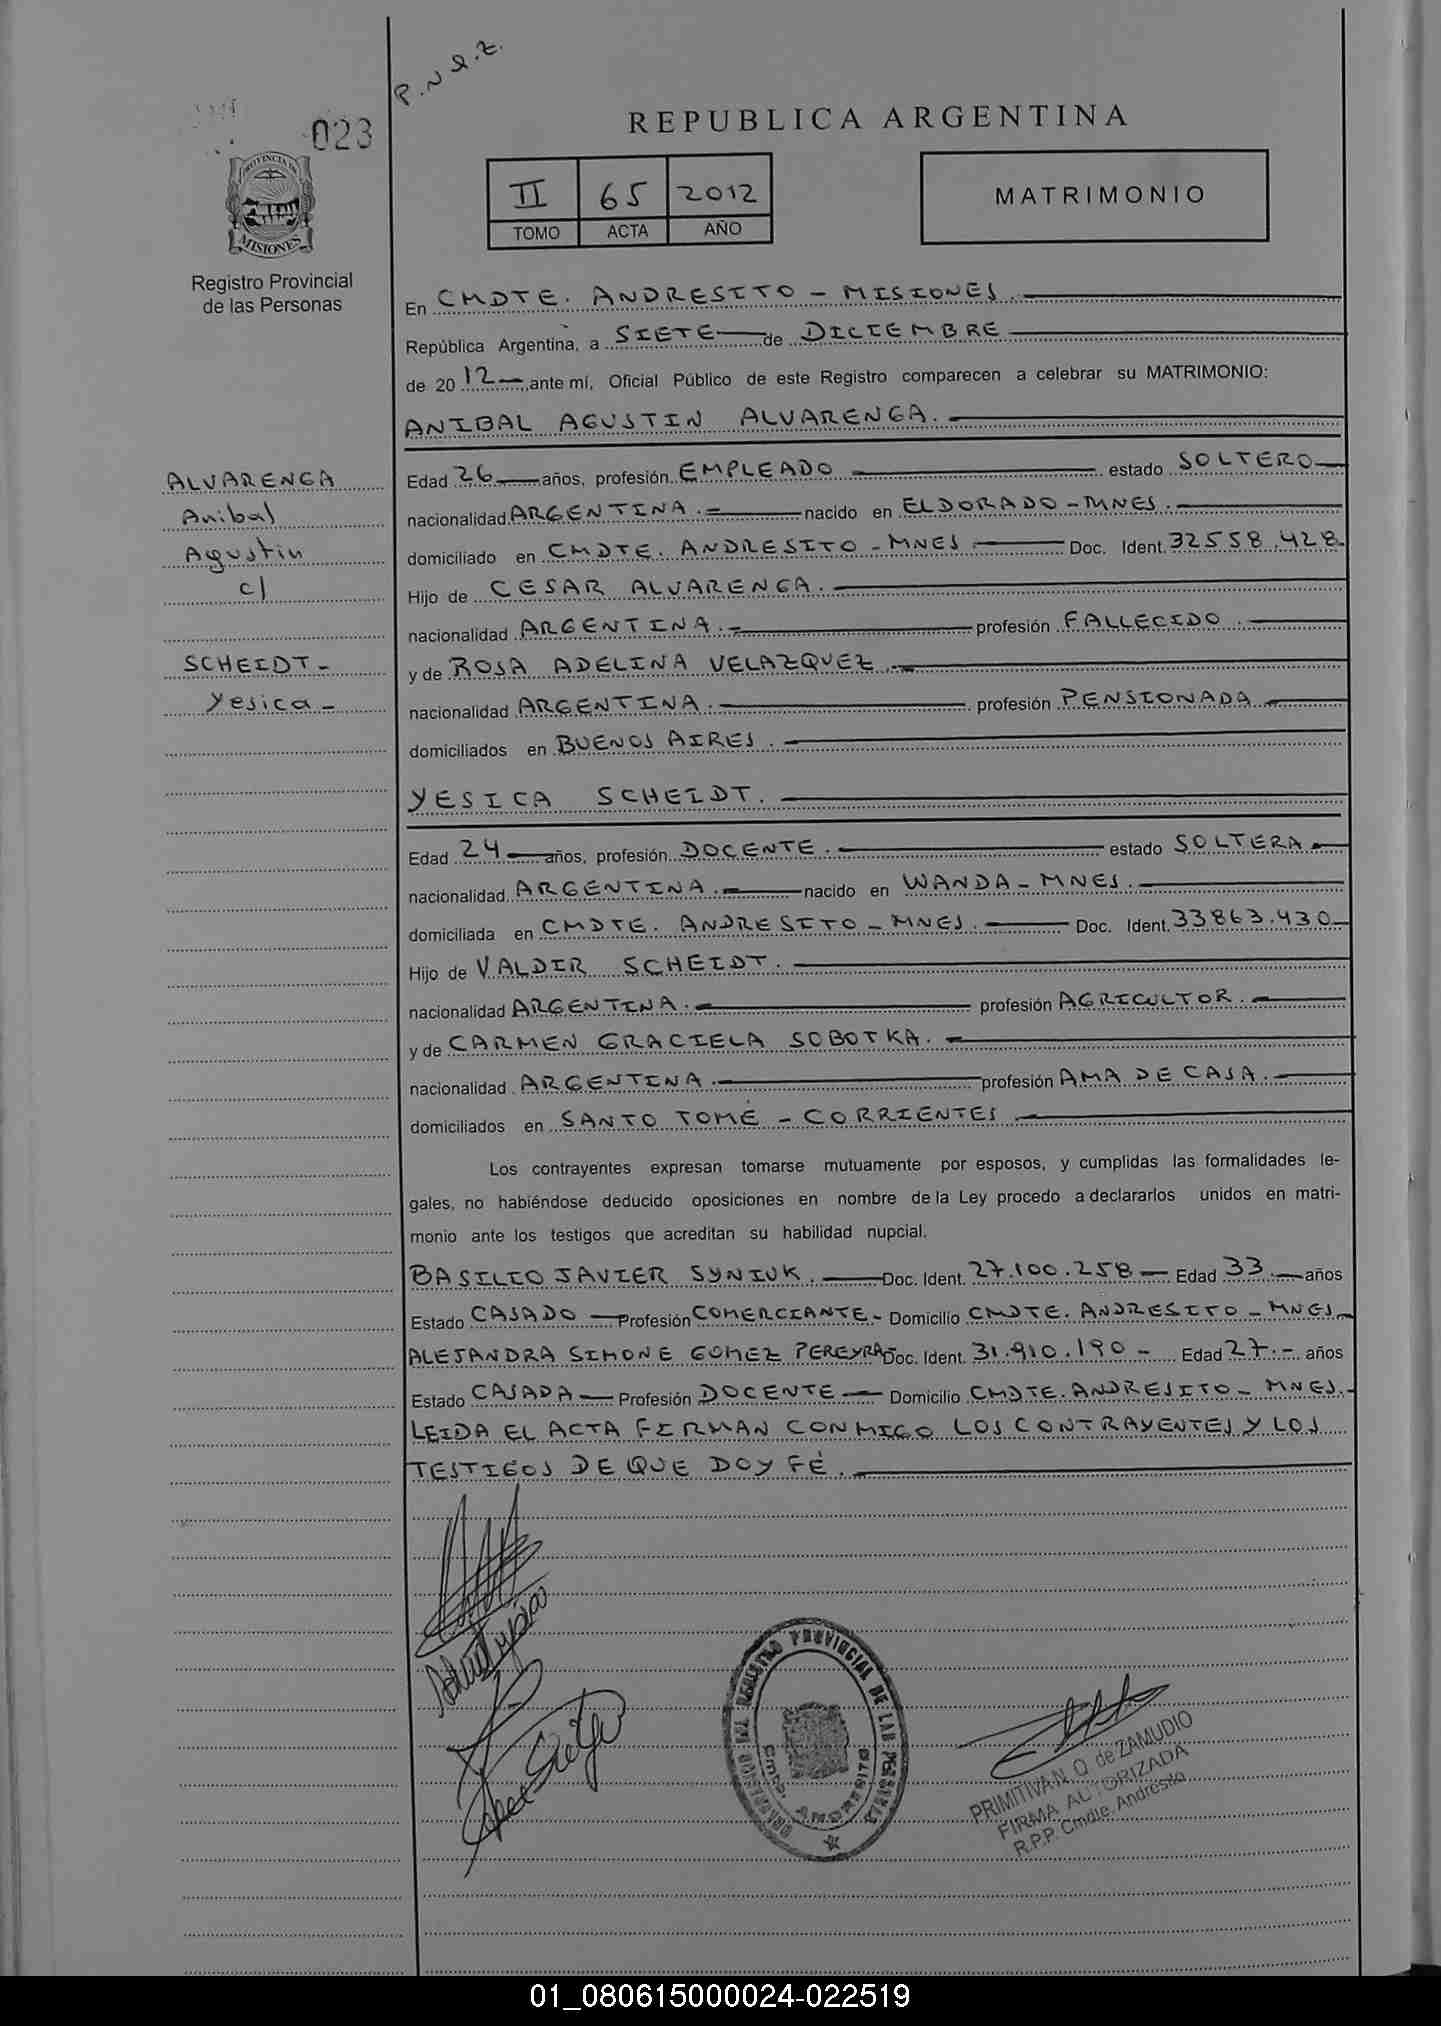 P.N.Q.Z.
023
REPUBLICA ARGENTINA
II 65 2012
TOMO ACTA AÑO
MATRIMONIO
PROVINCIA DE
MISIONES
Registro Provincial
de las Personas
En CMDTE. ANDRESITO - MISIONES.
República Argentina, a SIETE de DICIEMBRE
de 20 12 ,ante mí, Oficial Público de este Registro comparecen a celebrar su MATRIMONIO:
ANIBAL AGUSTIN ALVARENGA.
ALVARENGA
Anibal
Agustin
c/
SCHEIDT-
Yesica-
Edad 26 años, profesión EMPLEADO estado SOLTERO
nacionalidad ARGENTINA. nacido en ELDORADO-MNES.
domiciliado en CMDTE. ANDRESITO-MNES Doc. Ident. 32558.428-
Hijo de CESAR ALVARENGA.
nacionalidad ARGENTINA.- profesión FALLECIDO.
y de ROSA ADELINA VELAZQUEZ.
nacionalidad ARGENTINA. profesión PENSIONADA
domiciliados en BUENOS AIRES.
YESICA SCHEIDT.
Edad 24 años, profesión DOCENTE. estado SOLTERA
nacionalidad ARGENTINA. nacido en WANDA-MNES.
domiciliada en CMDTE. ANDRESITO-MNES. Doc. Ident. 33863.430
Hijo de VALDIR SCHEIDT.
nacionalidad ARGENTINA. profesión AGRICULTOR.
y de CARMEN GRACIELA SOBOTKA.
nacionalidad ARGENTINA. profesión AMA DE CASA.
domiciliados en SANTO TOMÉ - CORRIENTES.
Los contrayentes expresan tomarse mutuamente por esposos, y cumplidas las formalidades le-
gales, no habiéndose deducido oposiciones en nombre de la Ley procedo a declararlos unidos en matri-
monio ante los testigos que acreditan su habilidad nupcial.
BASILIO JAVIER SYNIUK. Doc. Ident. 27.100.258 Edad 33. años
Estado CASADO Profesión COMERCIANTE- Domicilio CMDTE. ANDRESITO-MNES
ALEJANDRA SIMONE GOMEZ PEREYRA Doc. Ident. 31.910.190 - Edad 27.- años
Estado CASADA Profesión DOCENTE Domicilio CMDTE. ANDRESITO-MNES.-
LEIDA EL ACTA FIRMAN CONMIGO LOS CONTRAYENTES Y LOS
TESTIGOS DE QUE DOY FÉ.
REGISTRO PROVINCIAL DE LAS PERSONAS
Cmte. ANDRESITO
PRIMITIVA N. Q. de ZAMUDIO
FIRMA AUTORIZADA
R.P.P. Cmdte. Andresito
01_080615000024-022519